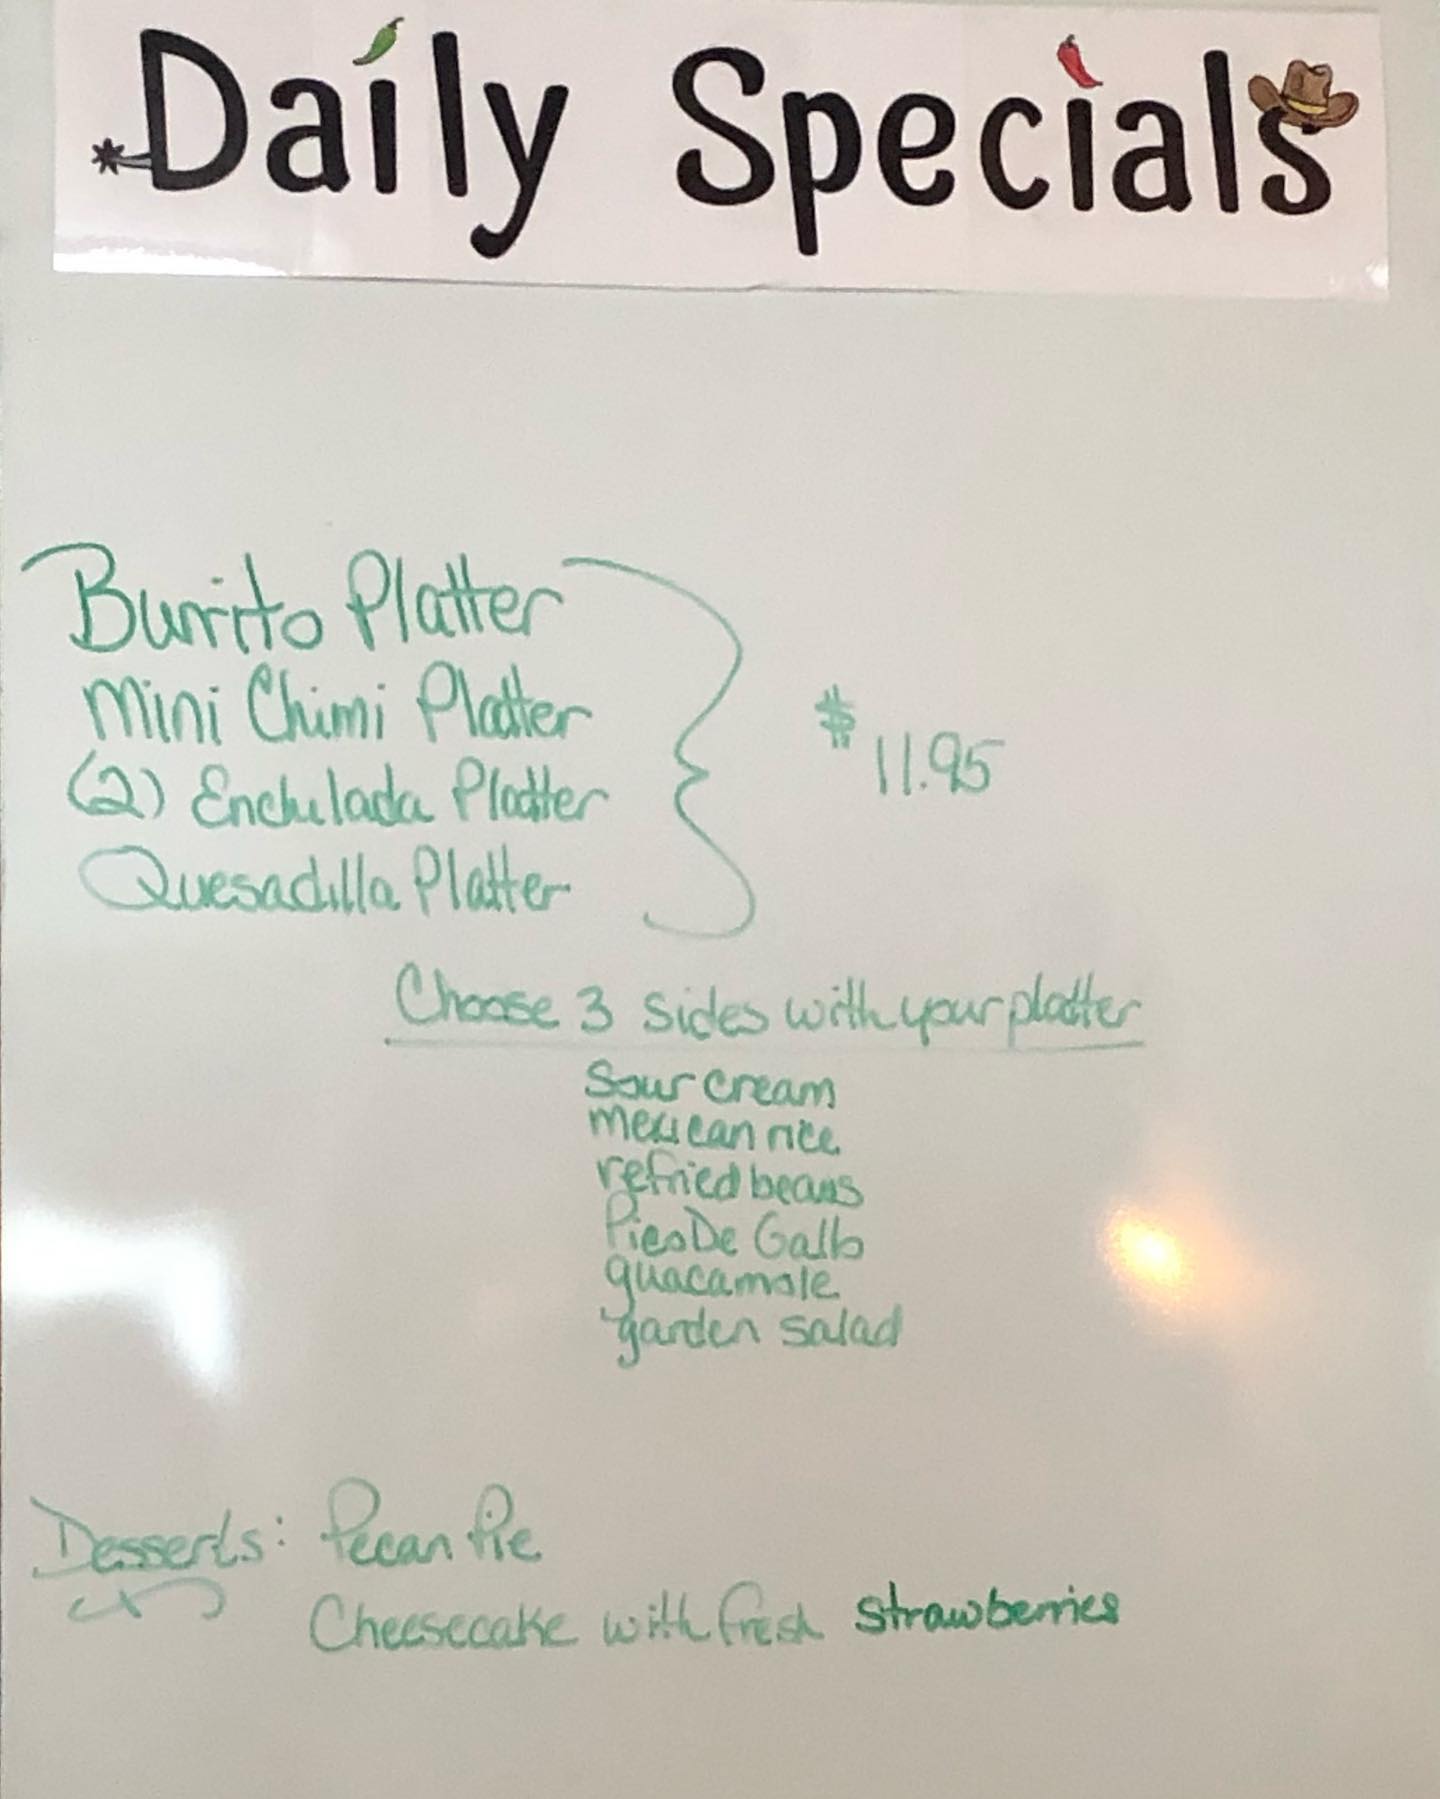 Daily Specials
Burrito Platter
Mini Chimi Platter
(2) Enchilada Platter
Quesadilla Platter
$11.95
Choose 3 sides with your platter
Sour cream
mexican rice
refried beans
Pico De Gallo
guacamole
garden salad
Desserts: Pecan Pie
Cheesecake with fresh strawberries